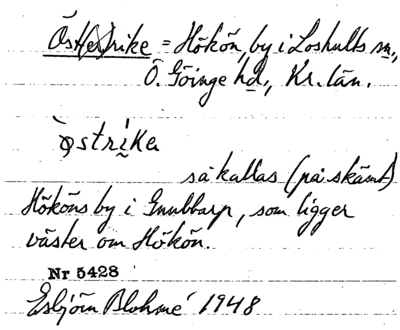 Öst(er)rike = Hökön, by i Loshults sn.,
Ö. Göinge hd., Kr. län.
òstrika
så kallas (på skämt)
Hököns by i Gnubbarp, som ligger
väster om Hökön.
Nr 5428
Esbjörn Blohmé 1948